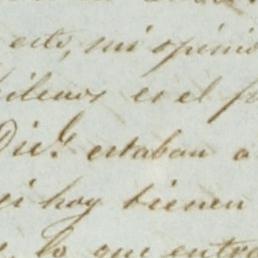 esto, mi opinio
hilenos es el
Dic.e estaban a
si hoy tienen
lo que entre